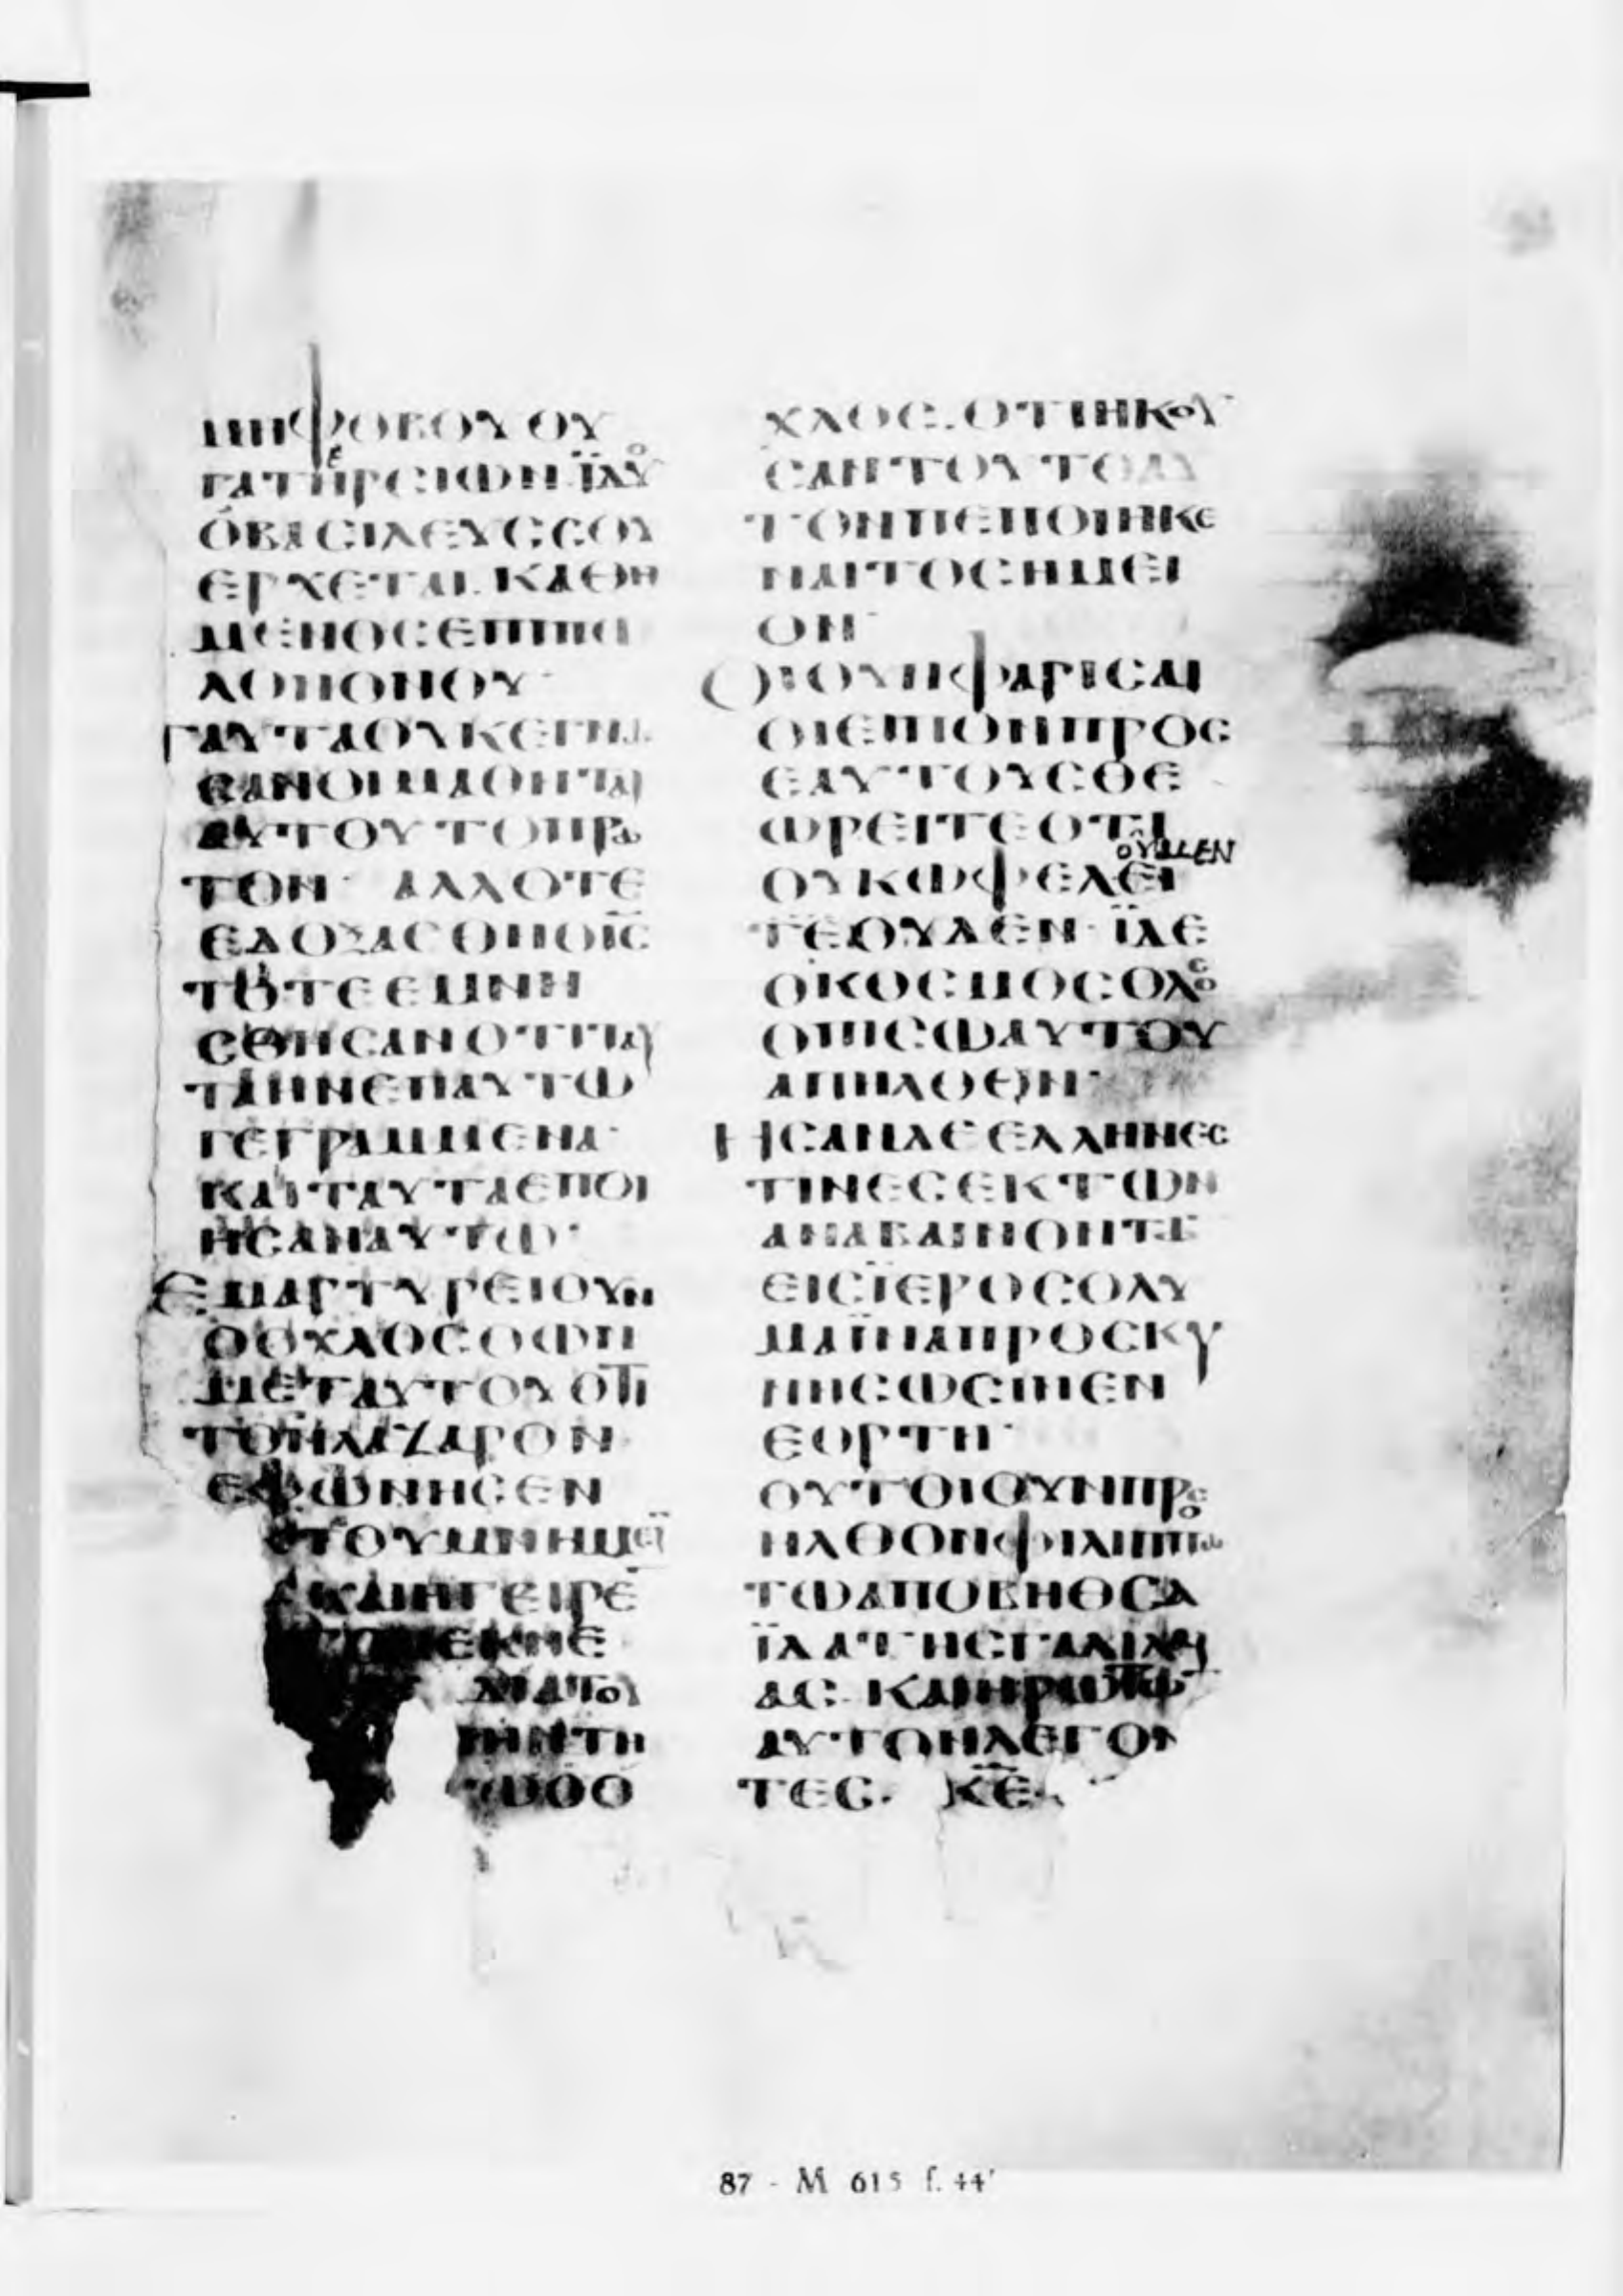 ⲙⲏⲫⲟⲃⲟⲩ ⲟⲩ
ΓΑΤΗΡ ΣΙΩΝ ΪΔΟΥ
Ο ΒΑΣΙΛΕΥΣ ΣΟΥ
ΕΡΧΕΤΑΙ· ΚΑΘΗ
ΜΕΝΟΣ ΕΠΙ ΠΩ
ΛΟΝ ΟΝΟΥ·
ΤΑΥΤΑ ΟΥΚ ΕΓΝΩ
ϹΑΝ ΟΙ ΜΑΘΗΤΑΙ
ΑΥΤΟΥ ΤΟ ΠΡΩ
ΤΟΝ· ΑΛΛ ΟΤΕ
ΕΔΟΞΑϹΘΗ Ο ΙϹ
ΤΟΤΕ ΕΜΝΗ
ϹΘΗϹΑΝ ΟΤΙ ΤΑΥ
ΤΑ ΗΝ ΕΠ ΑΥΤΩ
ΓΕΓΡΑΜΜΕΝΑ·
ΚΑΙ ΤΑΥΤΑ ΕΠΟΙ
ΗϹΑΝ ΑΥΤΩ·
ΕΜΑΡΤΥΡΕΙ ΟΥΝ
Ο ΟΧΛΟϹ Ο ΩΝ
ΜΕΤ ΑΥΤΟΥ ΟΤΙ
ΤΟΝ ΛΑΖΑΡΟΝ
ΕΦΩΝΗϹΕΝ
ΕΚ ΤΟΥ ΜΝΗΜΕΙ
ΚΑΙ ΗΓΕΙΡΕ
ΕΚ ΝΕ
ΔΙΑ ΤΟΥ
ΗΝΤΗ
ΤΩ Ο Ο
ΧΛΟϹ· ΟΤΙ ΗΚΟΥ
ϹΑΝ ΤΟΥΤΟ ΑΥ
ΤΟΝ ΠΕΠΟΙΗΚΕ
ΝΑΙ ΤΟ ϹΗΜΕΙ
ΟΝ·
ΟΙ ΟΥΝ ΦΑΡΙϹΑΙ
ΟΙ ΕΙΠΟΝ ΠΡΟϹ
ΕΑΥΤΟΥϹ ΘΕ
ΩΡΕΙΤΕ ΟΤΙ
ΟΥΔΕΝ
ΟΥΚ ΩΦΕΛΕΙ
ΤΕ ΟΥΔΕΝ· ΪΔΕ
Ο ΚΟϹΜΟϹ ΟΛΟϹ
ΟΠΙϹΩ ΑΥΤΟΥ
ΑΠΗΛΘΕΝ·
ΗϹΑΝ ΔΕ ΕΛΛΗΝΕϹ
ΤΙΝΕϹ ΕΚ ΤΩΝ
ΑΝΑΒΑΙΝΟΝΤΩ
ΕΙϹ ΪΕΡΟϹΟΛΥ
ΜΑ ΪΝΑ ΠΡΟϹΚΥ
ΝΗϹΩϹΙΝ ΕΝ
ΕΟΡΤΗ·
ΟΥΤΟΙ ΟΥΝ ΠΡΟϹ
ΗΛΘΟΝ ΦΙΛΙΠΠΩ
ΤΩ ΑΠΟ ΒΗΘϹΑ
ΪΔΑ ΤΗϹ ΓΑΛΙΛΑΙ
ΑϹ· ΚΑΙ ΗΡΩΤΩ
ΑΥΤΟΝ ΛΕΓΟΝ
ΤΕϹ· ΚΕ·
87 - M 615 f. 44'